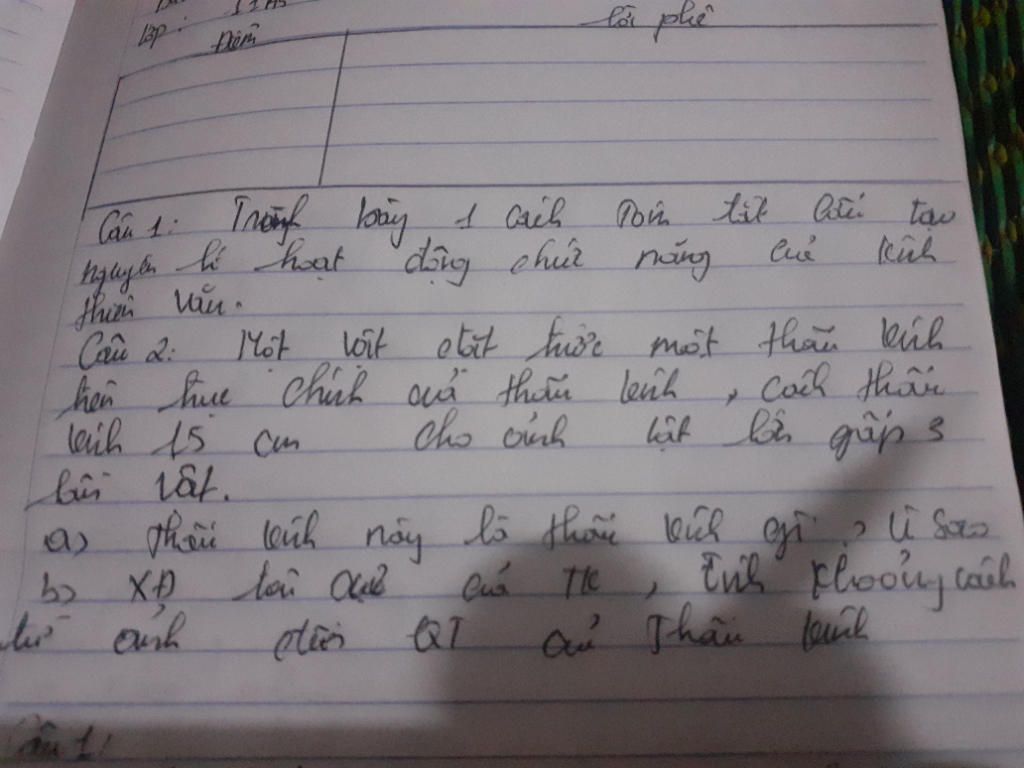 Lớp: 11A5
Điểm
lời phê
Câu 1: Trình bày 1 cách Tóm tắt Cấu tạo
nguyên lí hoạt động chức năng của kính
thiên văn.
Câu 2: Một vật đặt trước một thấu kính
trên trục chính của thấu kính, cách thấu
kính 15 cm cho ảnh thật lớn gấp 3
lần vật.
a) thấu kính này là thấu kính gì, Vì sao
b) XĐ tiêu cự của TK, Tính Khoảng cách
từ ảnh đến QT của Thấu kính
Câu 1: